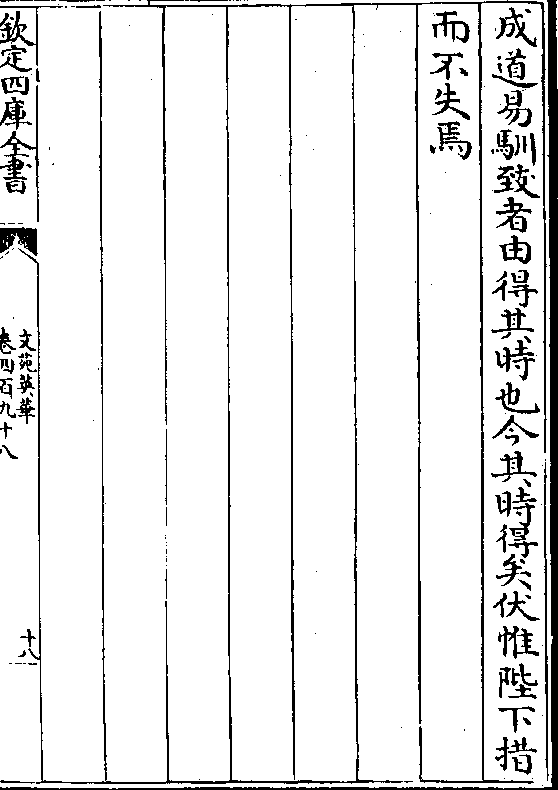 成道易馴致者由得其時也今其時得矣伏惟陛下措
而不失焉
欽定四庫全書
文苑英華
卷四百九十八
十八